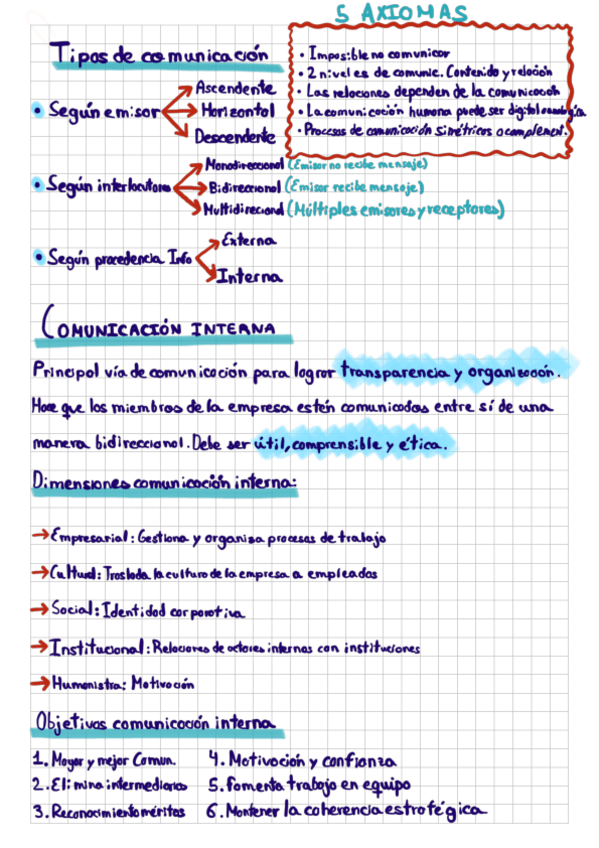 5 AXIOMAS
• Imposible no comunicar
• 2 niveles de comunic. Contenido y relación
• Las relaciones dependen de la comunicación
• La comunicación humana puede ser digital o analógica
• Procesos de comunicación simétricos o complement.
Tipos de comunicación
• Según emisor
Ascendente
Horizontal
Descendente
• Según interlocutores
Monodireccional (Emisor no recibe mensaje)
Bidireccional (Emisor recibe mensaje)
Multidirecional (Múltiples emisores y receptores)
• Según procedencia Info
Externa
Interna
COMUNICACIÓN INTERNA
Principal vía de comunicación para lograr transparencia y organización.
Hace que los miembros de la empresa estén comunicados entre sí de una
manera bidireccional. Debe ser útil, comprensible y ética.
Dimensiones comunicación interna:
→ Empresarial: Gestiona y organiza procesos de trabajo
→ Cultural: Traslada la cultura de la empresa a empleados
→ Social: Identidad corporativa
→ Institucional: Relaciones de actores internos con instituciones
→ Humanistra: Motivación
Objetivos comunicación interna
1. Mayor y mejor Comun.
2. Elimina intermediarios
3. Reconocimiento méritos
4. Motivación y confianza
5. Fomenta trabajo en equipo
6. Mantener la coherencia estratégica